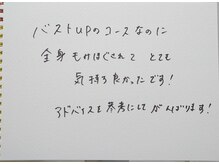 バストUPのコースなのに
全身もみほぐされて とても
気持ち良かったです!
アドバイスを参考にしてがんばります!